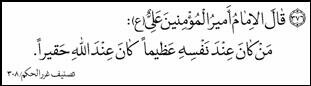 (٢٧٦) قَالَ الإِمَامُ أَمِيرُ الْمُؤْمِنِينَ عَلِيٌّ (ع):
مَنْ كَانَ عِنْدَ نَفْسِهِ عَظِيماً كَانَ عِنْدَ اللهِ حَقِيراً.
تصنيف غرر الحكم/ ٣٠٨